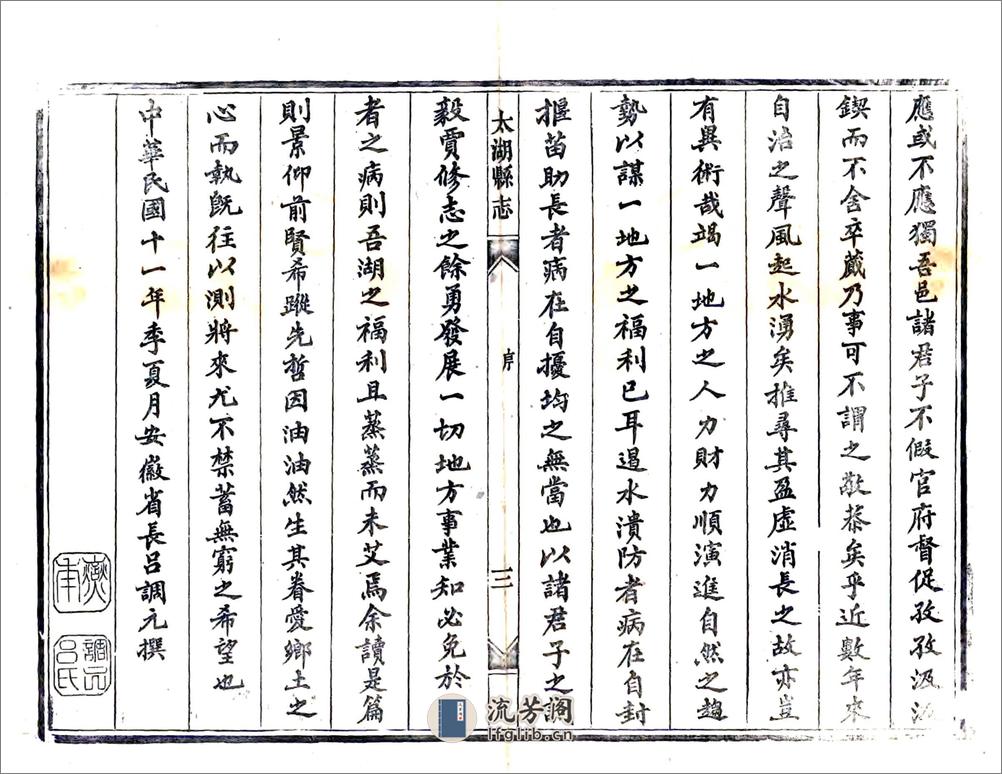 應或不應獨吾邑諸君子不假官府督促孜孜汲汲
鍥而不舍卒蕆乃事可不謂之敬恭矣乎近數年來
自治之聲風起水湧矣推尋其盈虛消長之故亦豈
有異術哉竭一地方之人力財力順演進自然之趨
勢以謀一地方之福利已耳遏水潰防者病在自封
揠苗助長者病在自擾均之無當也以諸君子之
太湖縣志
序
三
毅賈修志之餘勇發展一切地方事業知必免於
者之病則吾湖之福利且蒸蒸而未艾焉余讀是篇
則景仰前賢希蹤先哲因油油然生其眷愛鄉土之
心而執既往以測將來尤不禁蓄無窮之希望也
中華民國十一年季夏月安徽省長呂調元撰
調元
呂氏
流芳阁
lfglib.cn